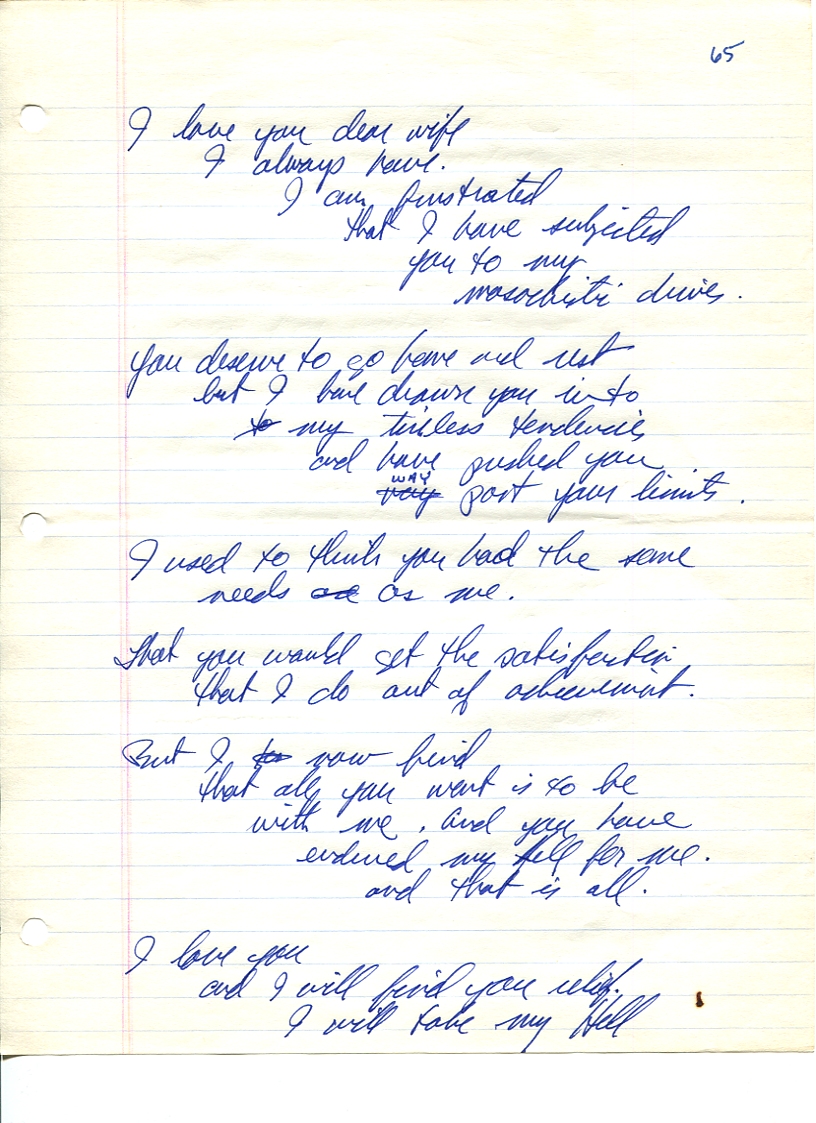 65
I love you dear wife
I always have.
I am frustrated
that I have subjected
you to my
masochistic drives.
You deserve to go home and rest
but I have drawn you into
to my tireless tendencies
and have pushed you
way WAY past your limits.
I used to think you had the same
needs as me.
That you would get the satisfaction
that I do out of achievement.
But I now find
that all you want is to be
with me, and you have
endured my hell for me.
and that is all.
I love you
and I will find you relief.
I will take my Hell